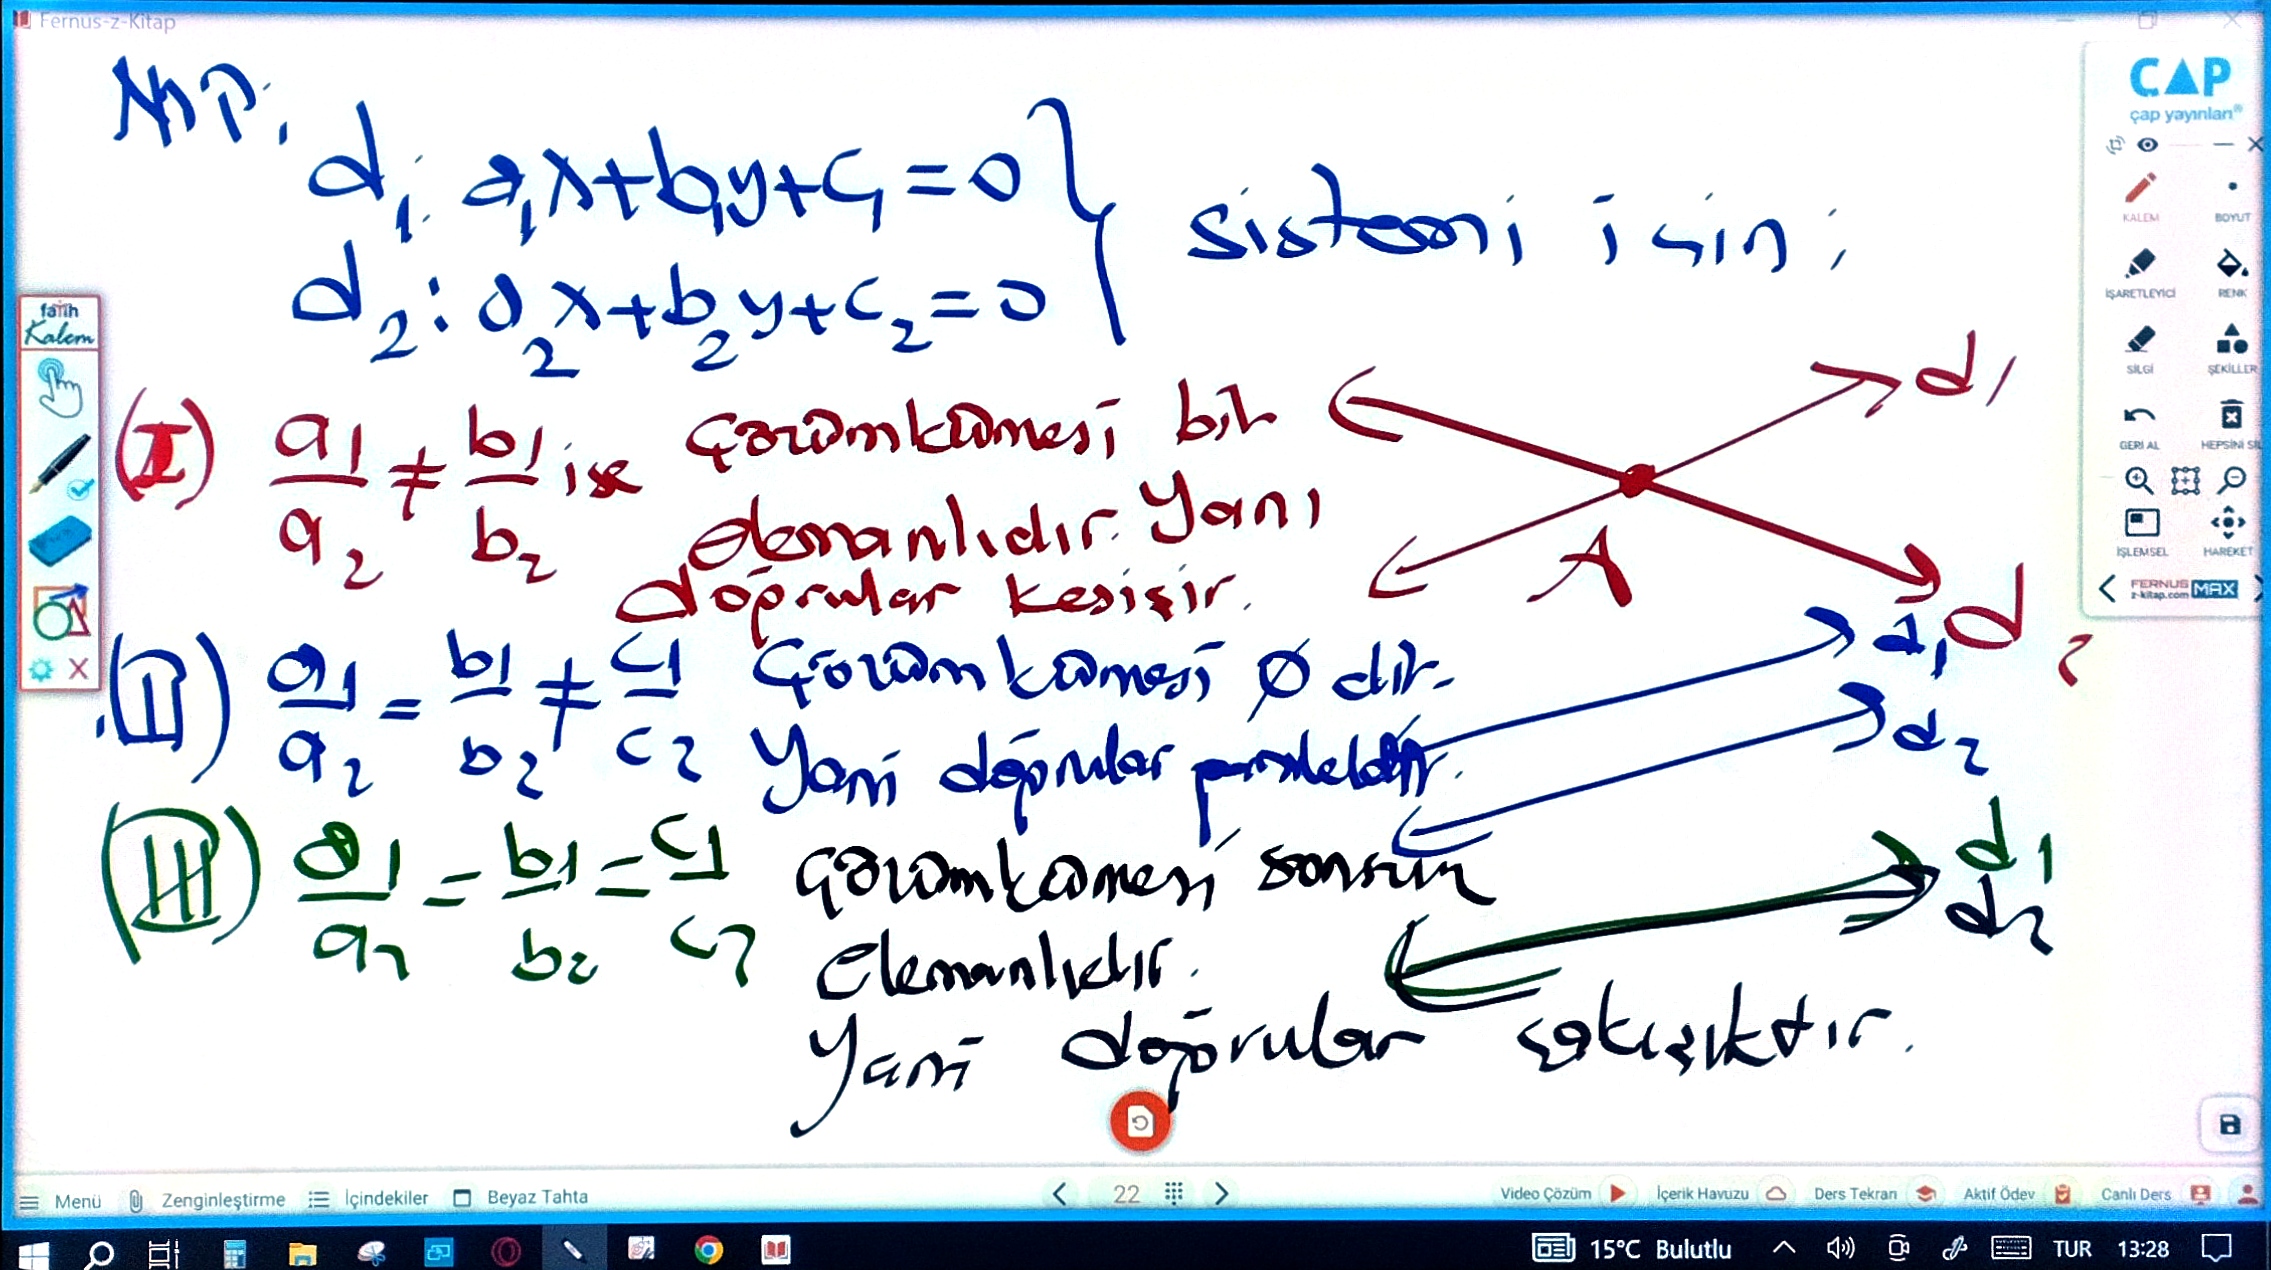 Fernus-z-Kitap
NTP:
d₁: a₁x+b₁y+c₁=0
d₂: a₂x+b₂y+c₂=0
sistemi için;
(I) a₁/a₂ ≠ b₁/b₂ ise Çözüm kümesi bir
elemanlıdır. Yani
doğrular kesişir.
d₁
A
d₂
(II) a₁/a₂ = b₁/b₂ ≠ c₁/c₂ Çözüm kümesi ∅ dir.
Yani doğrular paraleldir.
d₁
d₂
(III) a₁/a₂ = b₁/b₂ = c₁/c₂ Çözüm kümesi sonsuz
elemanlıdır.
Yani doğrular çakışıktır.
d₁
d₂
fatih
Kalem
ÇAP
çap yayınları®
KALEM
BOYUT
İŞARETLEYİCİ
RENK
SİLGİ
ŞEKİLLER
GERİ AL
HEPSİNİ SİL
İŞLEMSEL
HAREKET
FERNUS
z-kitap.com MAX
Menü Zenginleştirme İçindekiler Beyaz Tahta 22 Video Çözüm İçerik Havuzu Ders Tekran Aktif Ödev Canlı Ders
15°C Bulutlu TUR 13:28